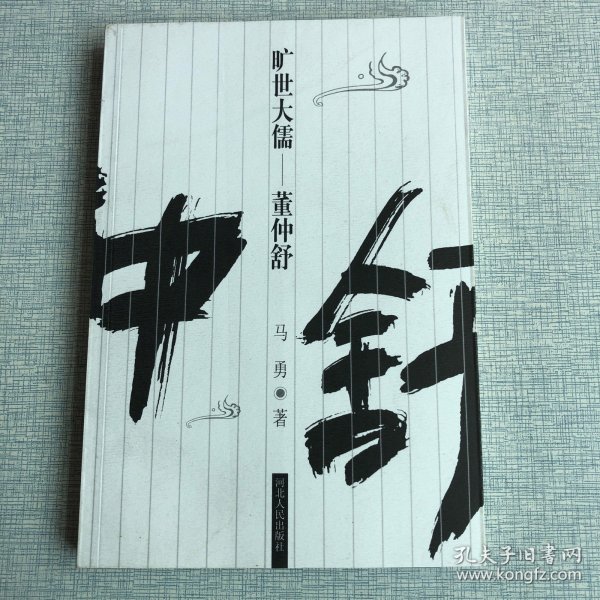 旷世大儒——董仲舒
马勇◉著
河北人民出版社
仲舒
孔夫子旧书网
www.kongfz.com